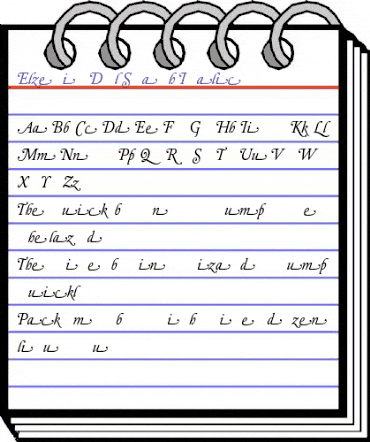 Elze i D l S a b I alic
Aa Bb Cc Dd Ee F G Hh Ii Kk Ll
Mm Nn Pp Q R S T Uu V W
X Y Zz
The uick b n ump e
he laz d
The i e b in iza d ump
uickl
Pack m b i h i e d zen
li u u